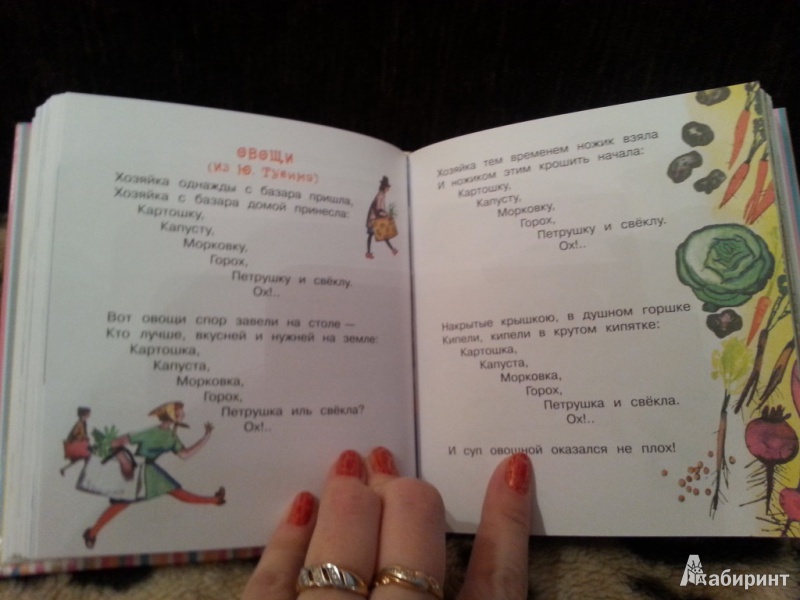 ОВОЩИ
(Из Ю. Тувима)
Хозяйка однажды с базара пришла,
Хозяйка с базара домой принесла:
Картошку,
Капусту,
Морковку,
Горох,
Петрушку и свёклу.
Ох!..
Вот овощи спор завели на столе —
Кто лучше, вкусней и нужней на земле:
Картошка,
Капуста,
Морковка,
Горох,
Петрушка иль свёкла?
Ох!..
Хозяйка тем временем ножик взяла
И ножиком этим крошить начала:
Картошку,
Капусту,
Морковку,
Горох,
Петрушку и свёклу.
Ох!..
Накрытые крышкою, в душном горшке
Кипели, кипели в крутом кипятке:
Картошка,
Капуста,
Морковка,
Горох,
Петрушка и свёкла.
Ох!..
И суп овощной оказался не плох!
Лабиринт